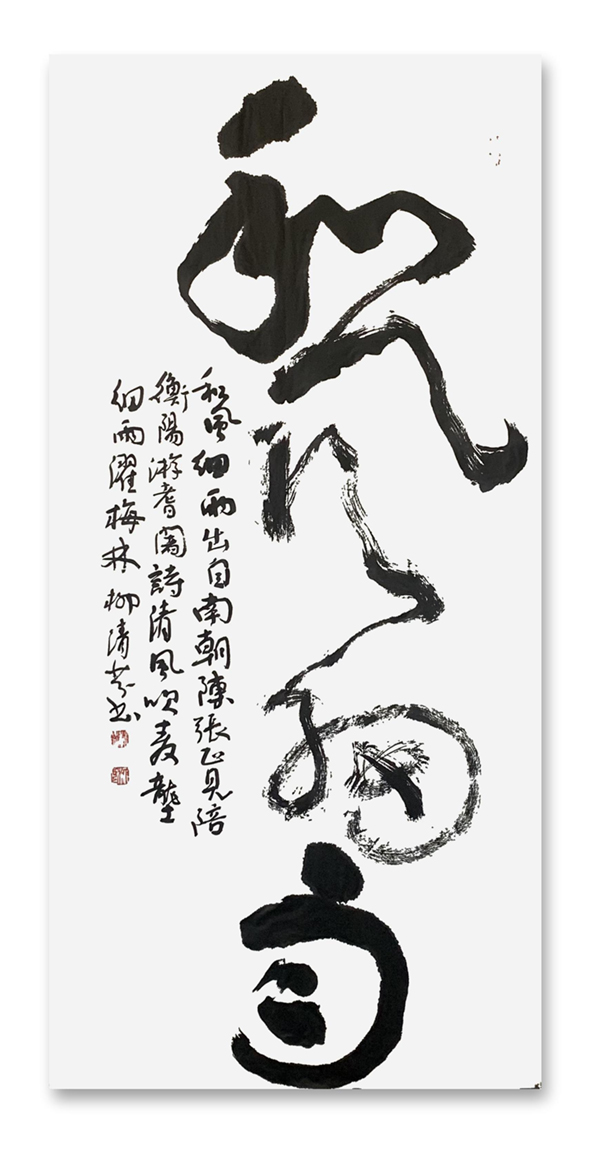 和风细雨
和風细雨出自南朝陳張正見陪
衡陽游耆闍詩清風吹麦壟
细雨濯梅林 柳清芬书